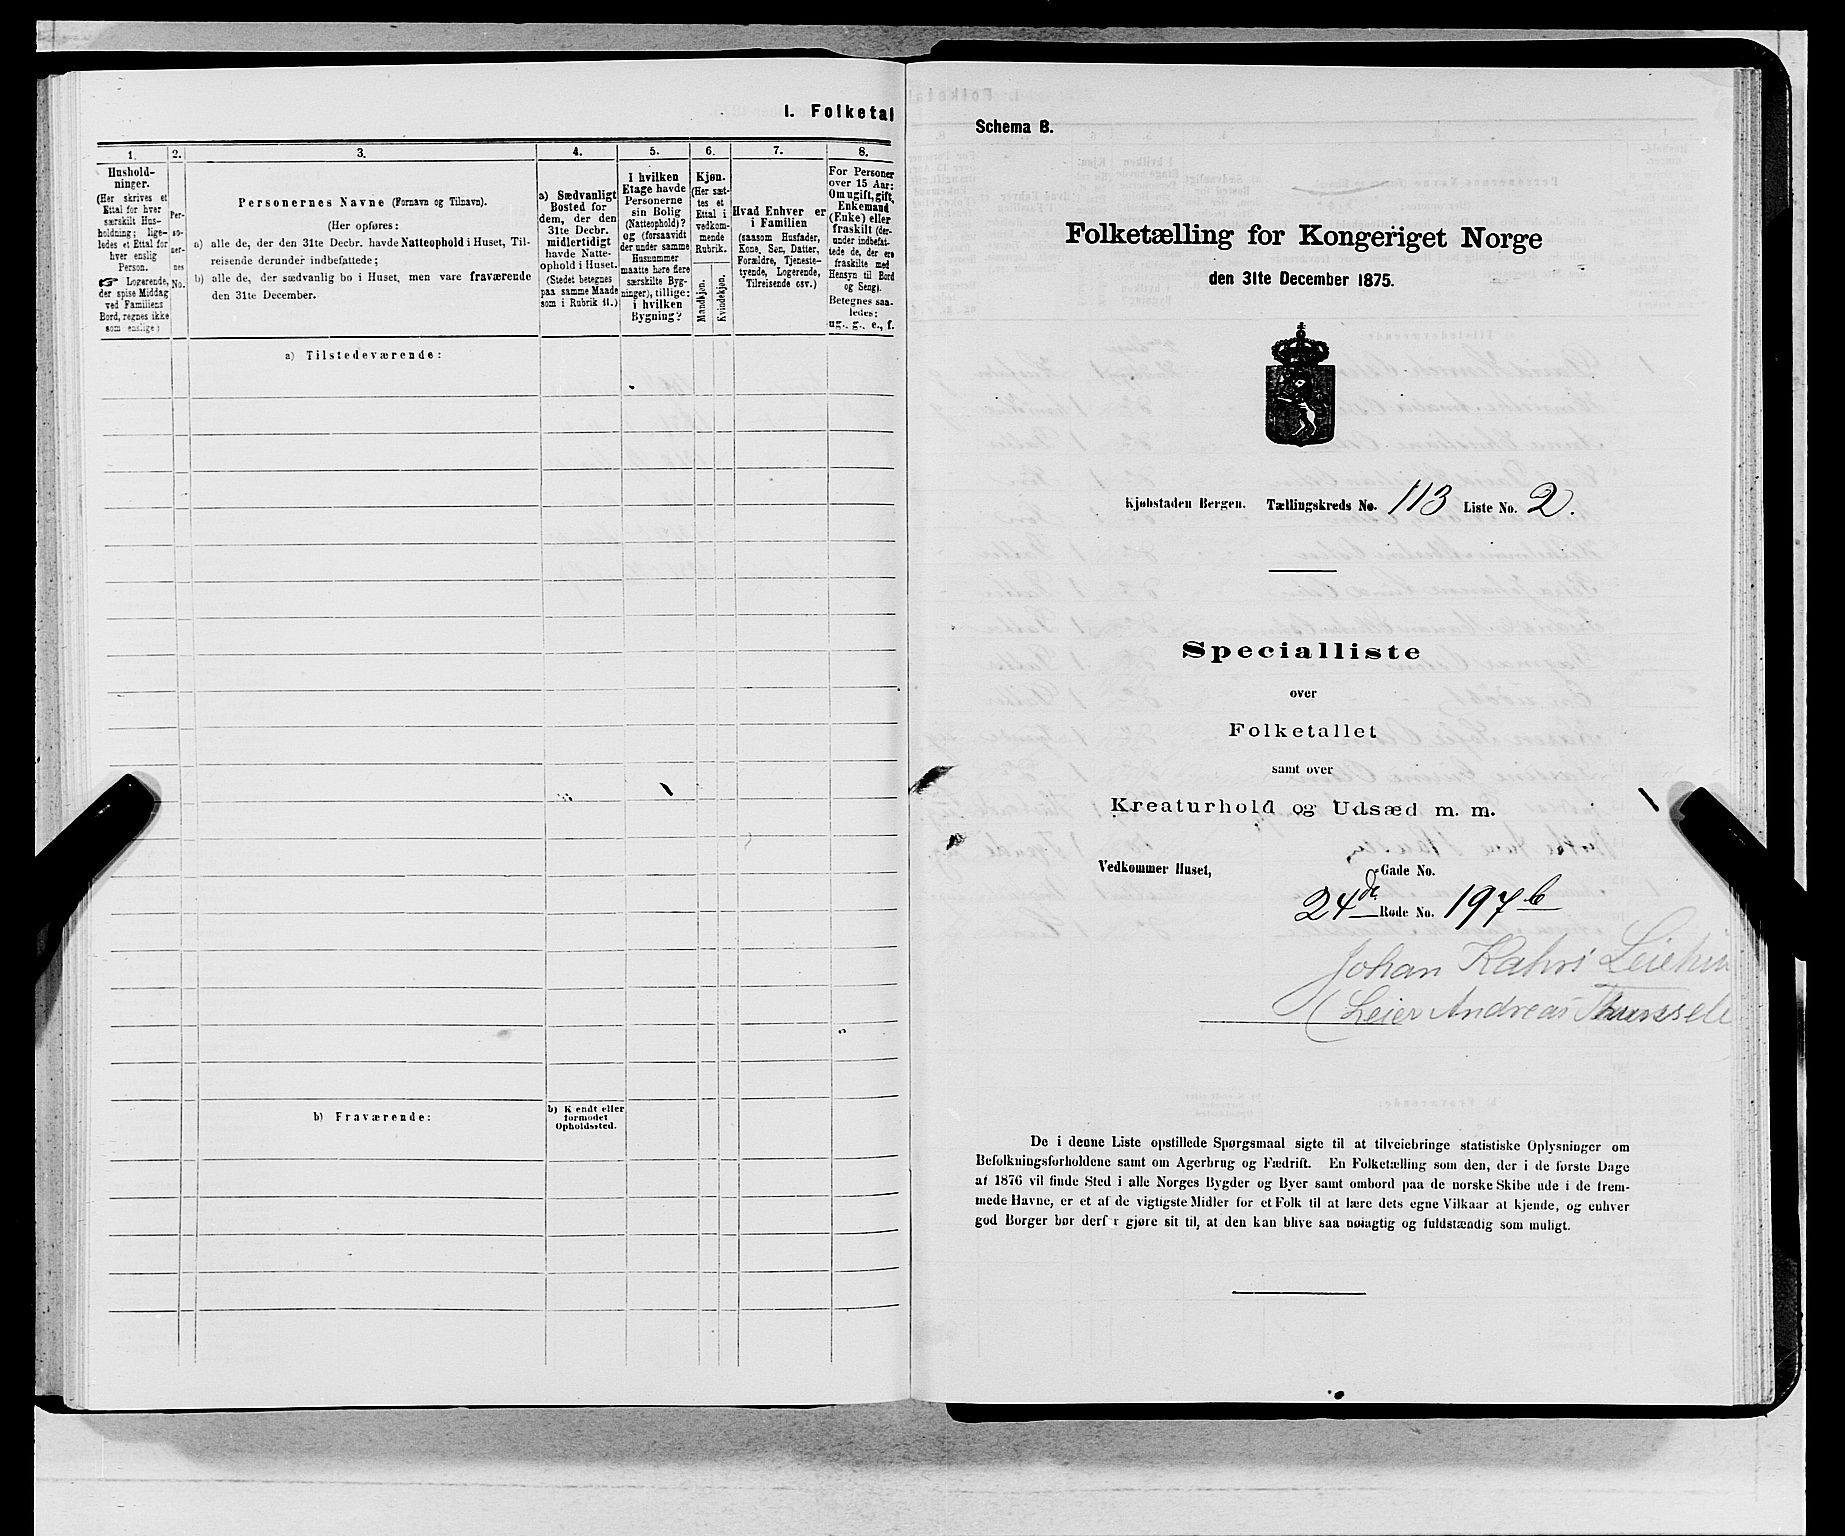 I. Folketal
1.
2.
3.
4.
5.
6.
7.
8.
Hushold-
ninger.
(Her skrives et
Ettal for hver
særskilt Hus-
holdning; lige-
ledes et Ettal for
hver enslig
Person.
☞ Logerende,
der spise Middag
ved Familiens
Bord, regnes ikke
som enslige)
Per-
so-
ner-
nes
No.
Personernes Navne (Fornavn og Tilnavn).
(Her opføres:
a) alle de, der den 31te Decbr. havde Natteophold i Huset, Til-
reisende derunder indbefattede;
b) alle de, der sædvanlig bo i Huset, men vare fraværende
den 31te December.
a) Sædvanligt
Bosted for
dem, der den
31te Decbr.
midlertidigt
havde Natte-
ophold i Huset.
(Stedet betegnes
paa samme Maade
som i Rubrik 11.)
I hvilken
Etage havde
Personerne
sin Bolig
(Natteophold)?
og (forsaavidt
der under samme
Husnummer
maatte høre flere
særskilte Byg-
ninger), tillige:
i hvilken
Bygning?
Kjøn.
(Her sæt-
tes et
Ettal i
vedkom-
mende
Rubrik.
Mandkjøn.
Kvindekjøn.
Hvad Enhver er
i Familien
(saasom Husfader,
Kone, Søn, Datter,
Forældre, Tjeneste-
tyende, Logerende,
Tilreisende osv.)
For Personer
over 15 Aar:
Om ugift, gift,
Enkemand
(Enke) eller
fraskilt (der-
under indbefat-
tede de, der ere
fraskilte med
Hensyn til Bord
og Seng).
Betegnes saa-
ledes:
ug., g., e., f.
a) Tilstedeværende:
b) Fraværende:
b) Kjendt eller
formodet
Opholdssted.
Schema B.
Folketælling for Kongeriget Norge
den 31te December 1875.
Kjøbstaden Bergen. Tællingskreds No. 113 Liste No. 2.
Specialliste
over
Folketallet
samt over
Kreaturhold og Udsæd m. m.
Vedkommer Huset, Gade No.
24de Rode No. 197b
Johan
(Leier Andreas
De i denne Liste opstillede Spørgsmaal sigte til at tilveiebringe statistiske Oplysninger om
Befolkningsforholdene samt om Agerbrug og Fædrift. En Folketælling som den, der i de første Dage
af 1876 vil finde Sted i alle Norges Bygder og Byer samt ombord paa de norske Skibe ude i de frem-
mede Havne, er et af de vigtigste Midler for et Folk til at lære dets egne Vilkaar at kjende, og enhver
god Borger bør derfor gjøre sit til, at den kan blive saa nøiagtig og fuldstændig som muligt.